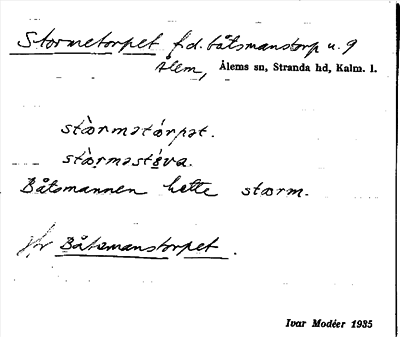 Stormetorpet f.d. båtsmanstorp u. 9
Ålem, Ålems sn, Stranda hd, Kalm. l.
stærmətårpət.
stærməstéva.
Båtsmannen hette stærm.
Jfr Båtsmanstorpet.
Ivar Modéer 1935